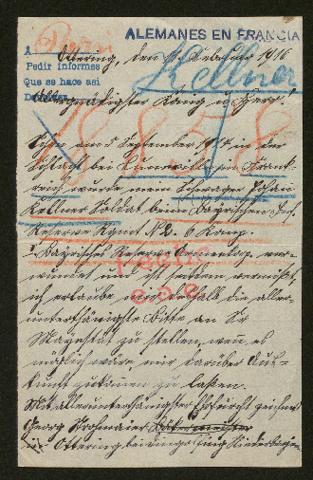 ALEMANES EN FRANCIA
Pedir informes
Que se hace así
Ottering, den Februar 1916
Kellner
Allergnädigster König u. Herr!
Schon am 5 September 1914 in der
Schlacht bei Luneville in Frank
reich wurde mein Schwager Johan
Kellner Soldat beim Bayrischen Inf.
Reserve Rgmt No 2. 6 Komp.
1 Bayrisches Reserve Armeekorp. ver-
wundet und ist seitdem vermißt,
ich erlaube mir deshalb die aller-
unterthänigste Bitte an Sr
Mayestät zu stellen, wenn es
möglich wäre mir darüber Aus-
kunft zukomen zu laßen.
Mit allerunterthänigster Ehrfurcht zeichnet
Georg
in Ottering bei Dingolfing Niederbayern